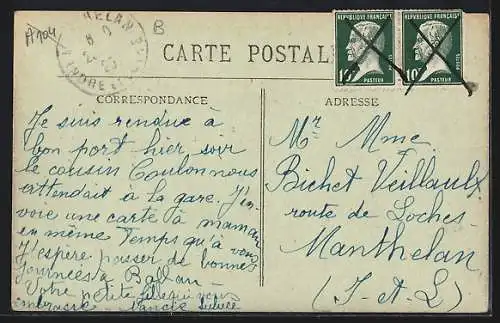 A104
B
CARTE POSTALE
REPVBLIQUE FRANÇAISE
REPVBLIQUE FRANÇAISE
10
PASTEUR
POSTES
10
PASTEUR
POSTES
CORRESPONDANCE
ADRESSE
Je suis rendue à
bon port hier soir
le cousin Coulon nous
attendait à la gare. J'en
voie une carte à maman
en même temps qu'à vous
J'espère passer de bonnes
journées à Ballan
Votre petite fille qui vous
embrasse
Mr Mme
Bichet Veillault
route de Loches
Manthelan
(I-et-L)